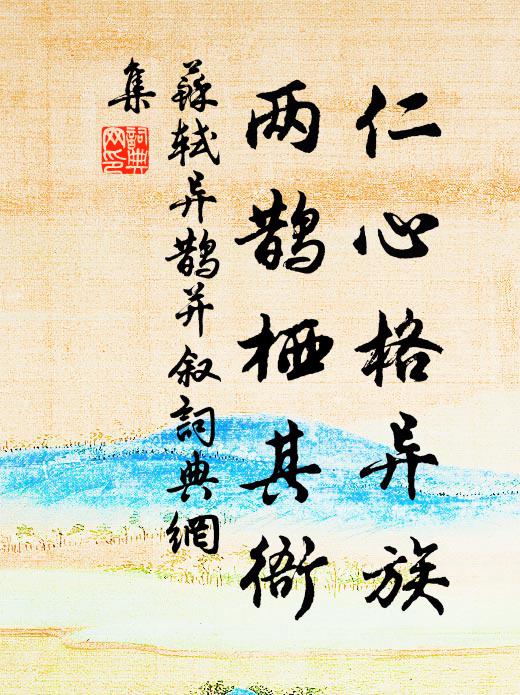 仁心格异族
两鹊栖其衙
苏轼异鹊并叙詞典網
集
詞典
网印